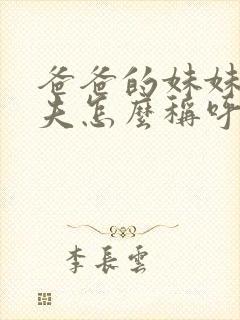 爸爸的妹妹
夫怎麼稱呼
李長雲